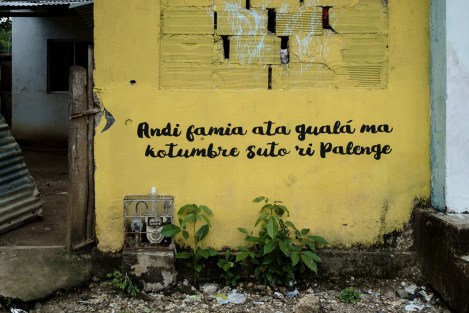 Andi famia ata gualá ma
kotumbre suto ri Palenge